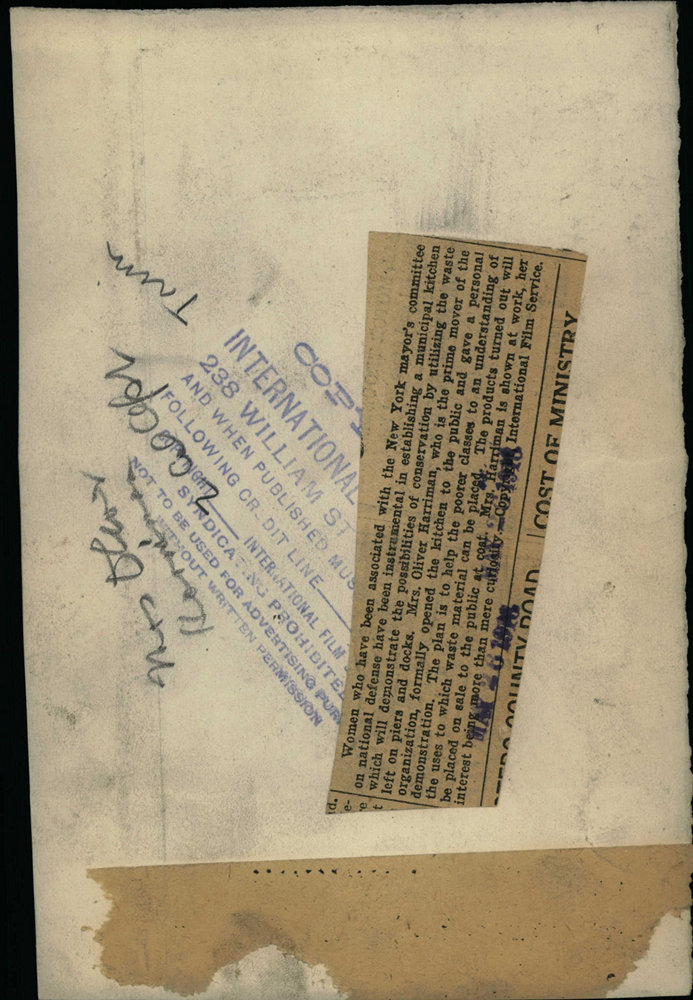 Trim
2 col copy
Mrs Oliver
Harriman
COPY
INTERNATIONAL
238 WILLIAM ST
AND WHEN PUBLISHED MUS
FOLLOWING CR DIT LINE
INTERNATIONAL FILM
SYNDICATING PROHIBITED
NOT TO BE USED FOR ADVERTISING PUR
WITHOUT WRITTEN PERMISSION
Women who have been associated with the New York mayor's committee
on national defense have been instrumental in establishing a municipal kitchen
which will demonstrate the possibilities of conservation by utilizing the waste
left on piers and docks. Mrs. Oliver Harriman, who is the prime mover of the
organization, formally opened the kitchen to the public and gave a personal
demonstration. The plan is to help the poorer classes to an understanding of
the uses to which waste material can be placed. The products turned out will
be placed on sale to the public at cost. Mrs. Harriman is shown at work, her
interest being more than mere curiosity. Copyright International Film Service.
COUNTY ROAD
COST OF MINISTRY
d.
e-
e
t